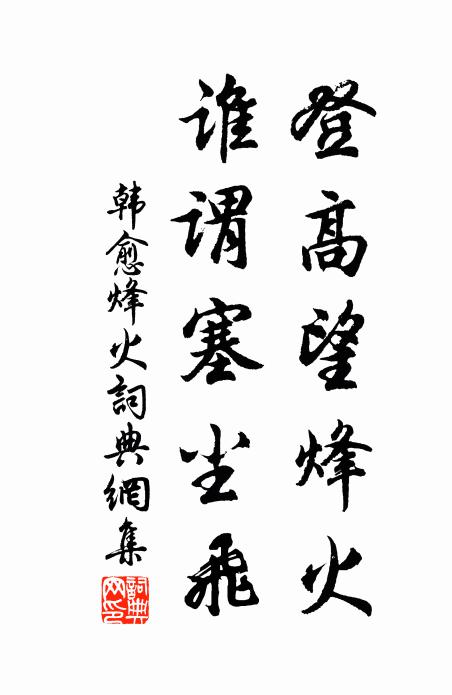 登高望烽火
谁谓塞尘飛
韩愈烽火詞典網集
詞典网印